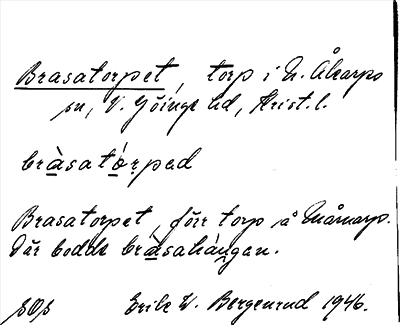 Brasatorpet, torp i N. Åkarps
sn, V. Göinge hd, Krist. l.
bràsatórped
Brasatorpet, förr torp å Mårnarp.
Där bodde bràsahàngen.
sOs Erik W. Bergenrud 1946.